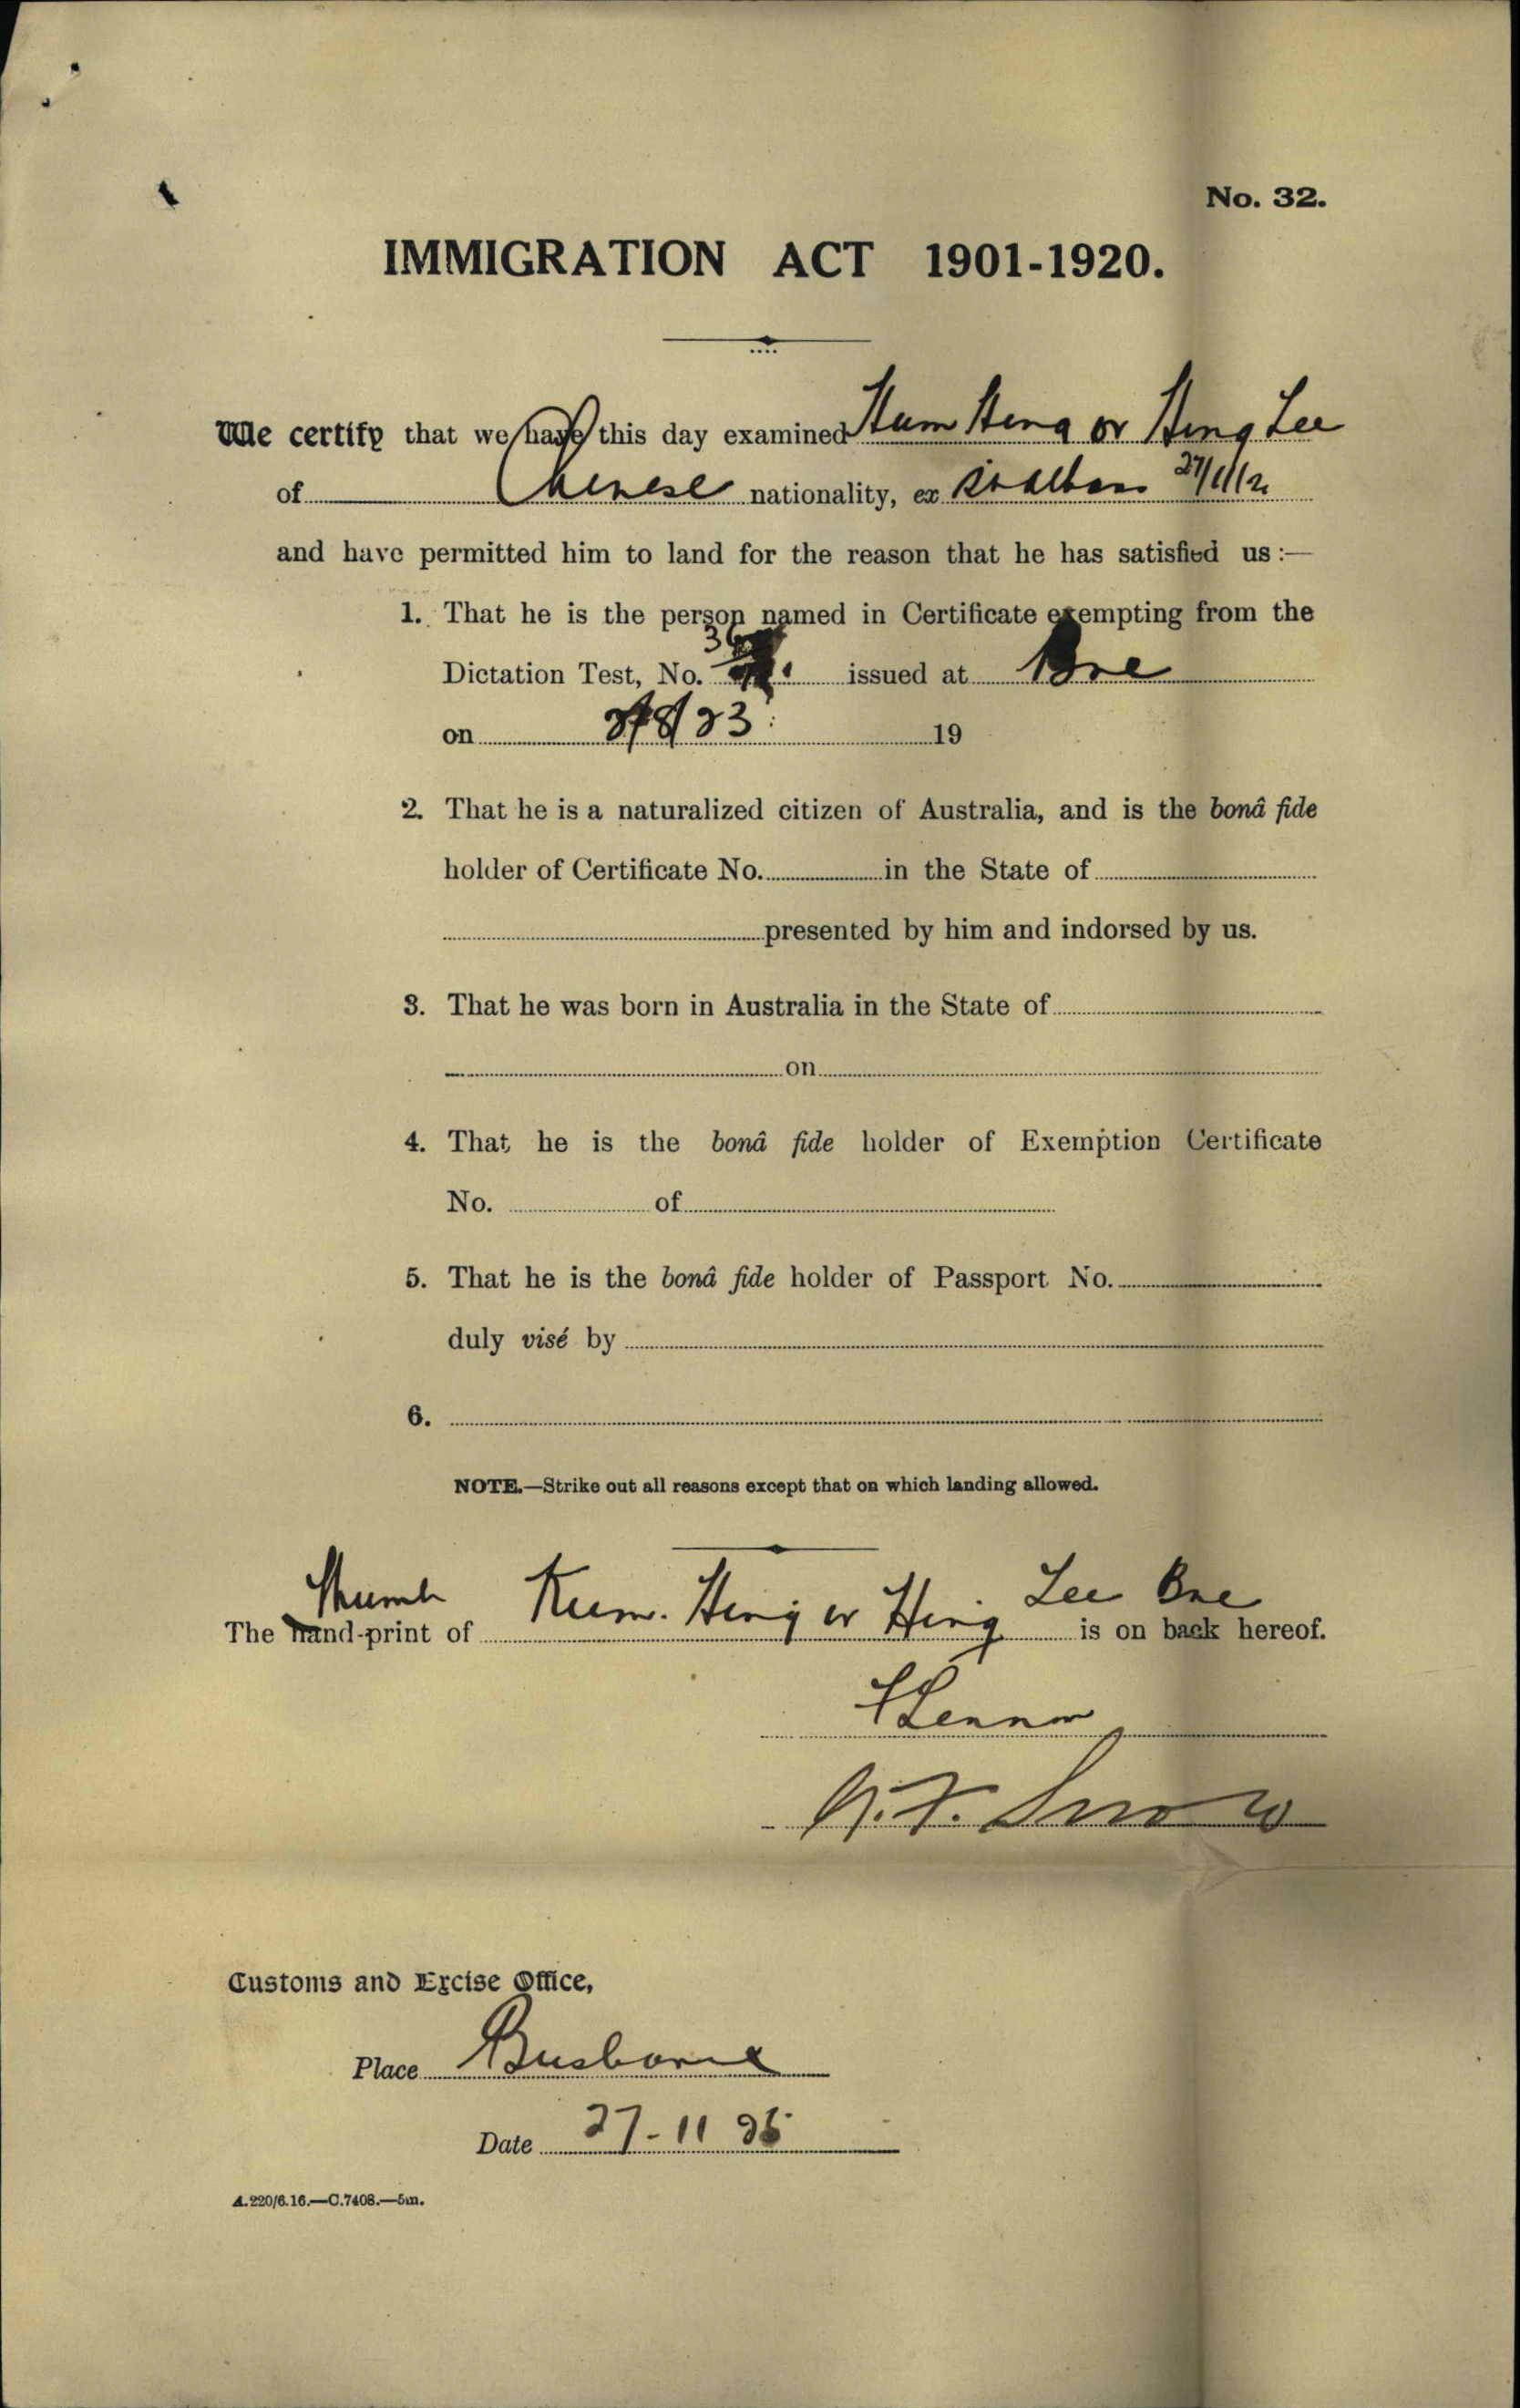 No. 32.
IMMIGRATION ACT 1901-1920.
We certify that we have this day examined Kum Heng or Heng Lee
of Chinese nationality, ex St Albans
and have permitted him to land for the reason that he has satisfied us :—
1. That he is the person named in Certificate exempting from the
Dictation Test, No. issued at Bne
on 19
2. That he is a naturalized citizen of Australia, and is the bonâ fide
holder of Certificate No. in the State of
presented by him and indorsed by us.
3. That he was born in Australia in the State of
on
4. That he is the bonâ fide holder of Exemption Certificate
No. of
5. That he is the bonâ fide holder of Passport No.
duly visé by
6.
NOTE.—Strike out all reasons except that on which landing allowed.
Thumb
The hand-print of Kum Heng or Heng Lee Bne is on back hereof.
Customs and Excise Office,
Place Brisbane
Date
A.220/6.16.—C.7408.—5m.